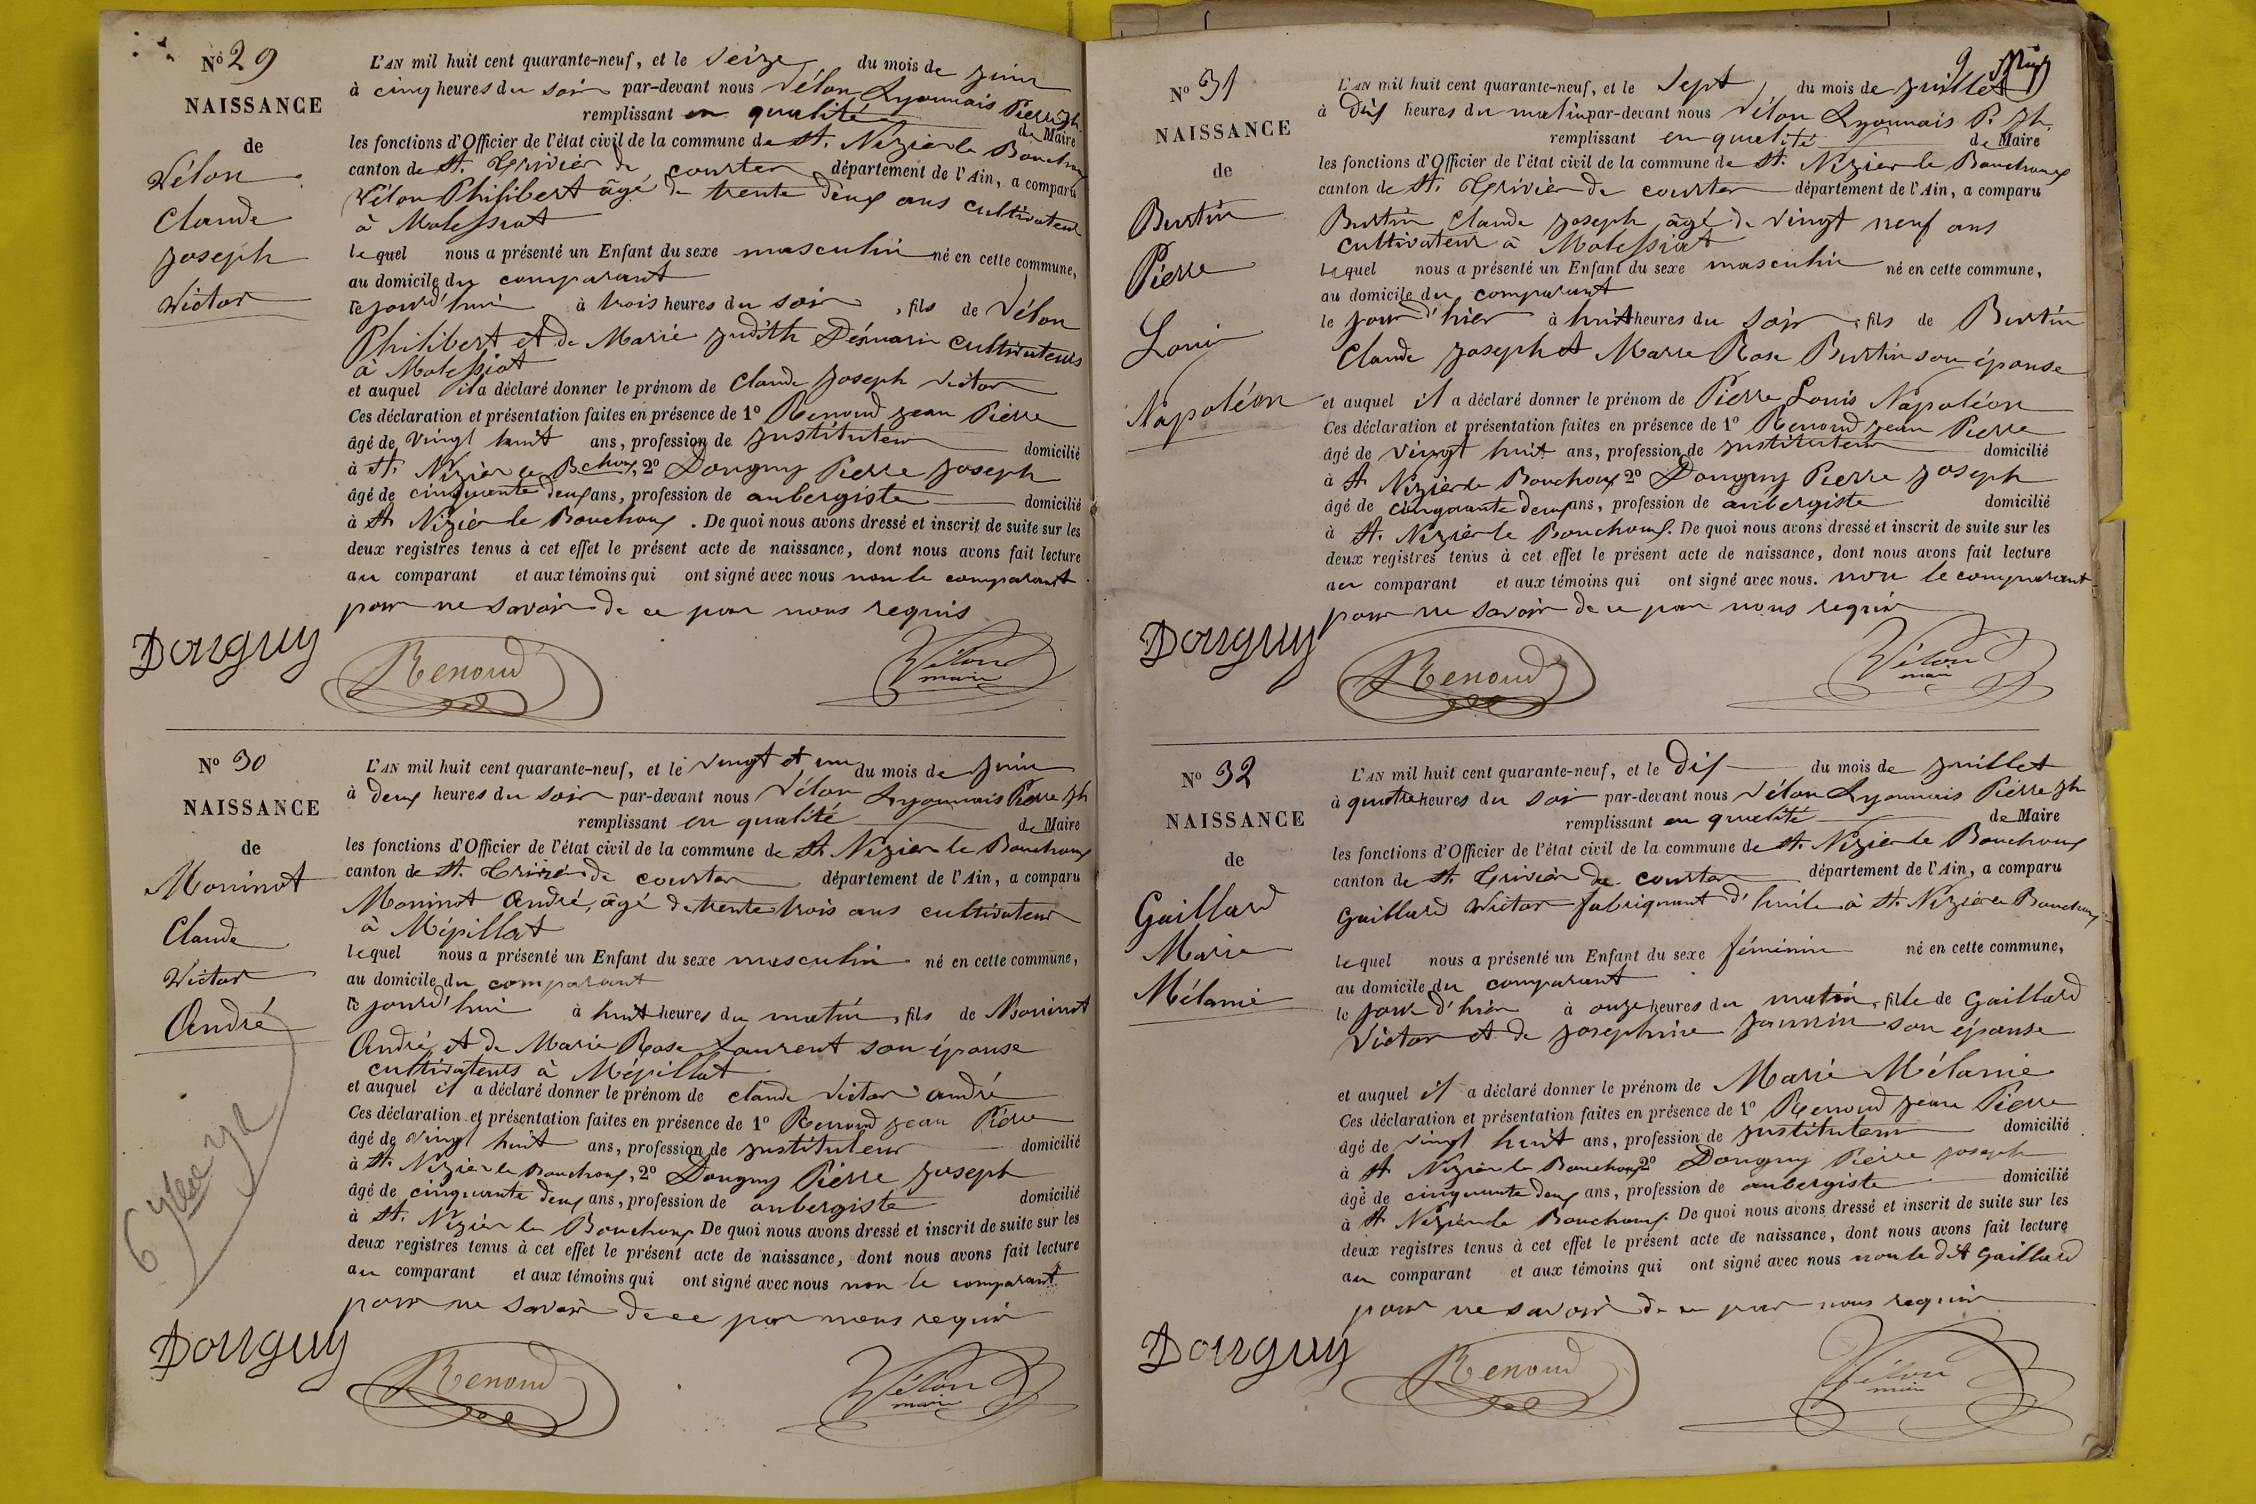 Nº 29
NAISSANCE
de
Vélon
Claude
Joseph
Victor
L'AN mil huit cent quarante-neuf, et le Seize du mois de Juin
à cinq heures du soir par-devant nous Vélon Lyonnais Pierre Jh
remplissant en qualité de Maire
les fonctions d'Officier de l'état civil de la commune de St. Nizier le Bouchoux
canton de St. Trivier de courtes département de l'Ain, a comparu
Vélon Philibert âgé de trente deux ans cultivateur
à Molessiat
lequel nous a présenté un Enfant du sexe masculin né en cette commune,
au domicile du comparant
ce jourd'hui à trois heures du soir, fils de Vélon
Philibert et de Marie Judith cultivateurs
à Molessiat
et auquel il a déclaré donner le prénom de Claude Joseph Victor
Ces déclaration et présentation faites en présence de 1º Renoud Jean Pierre
âgé de vingt huit ans, profession de Instituteur domicilié
à St. Nizier le Bchoux, 2º Douguy Pierre Joseph
âgé de cinquante deux ans, profession de aubergiste domicilié
à St Nizier le Bouchoux. De quoi nous avons dressé et inscrit de suite sur les
deux registres tenus à cet effet le présent acte de naissance, dont nous avons fait lecture
au comparant et aux témoins qui ont signé avec nous non le comparant
pour ne savoir de ce par nous requis
Douguy Renoud Vélon
maire
Nº 30
NAISSANCE
de
Moninot
Claude
Victor
André
L'AN mil huit cent quarante-neuf, et le vingt et un du mois de Juin
à deux heures du soir par-devant nous Vélon Lyonnais Pierre Jh
remplissant en qualité de Maire
les fonctions d'Officier de l'état civil de la commune de St Nizier le Bouchoux
canton de St. Trivier de courtes département de l'Ain, a comparu
Moninot André, âgé de trente trois ans cultivateur
à Mépillat
lequel nous a présenté un Enfant du sexe masculin né en cette commune,
au domicile du comparant
ce jourd'hui à huit heures du matin, fils de Moninot
André et de Marie Rose Laurent son épouse
cultivateurs à Mépillat
et auquel il a déclaré donner le prénom de claude Victor andré
Ces déclaration et présentation faites en présence de 1º Renoud Jean Pierre
âgé de vingt huit ans, profession de Instituteur domicilié
à St. Nizier le Bouchoux, 2º Douguy Pierre Joseph
âgé de cinquante deux ans, profession de aubergiste domicilié
à St. Nizier le Bouchoux De quoi nous avons dressé et inscrit de suite sur les
deux registres tenus à cet effet le présent acte de naissance, dont nous avons fait lecture
au comparant et aux témoins qui ont signé avec nous non le comparant
pour ne savoir de ce par nous requis
Douguy Renoud Vélon
maire
Nº 31
NAISSANCE
de
Burtin
Pierre
Louis
Napoléon
L'AN mil huit cent quarante-neuf, et le Sept du mois de Juillet
à dix heures du matin par-devant nous Vélon Lyonnais P. Jh.
remplissant en qualité de Maire
les fonctions d'Officier de l'état civil de la commune de St. Nizier le Bouchoux
canton de St. Trivier de courtes département de l'Ain, a comparu
Burtin Claude Joseph âgé de vingt neuf ans
cultivateur à Molessiat
lequel nous a présenté un Enfant du sexe masculin né en cette commune,
au domicile du comparant
le jour d'hier à huit heures du soir, fils de Burtin
Claude Joseph et Marie Rose Burtin son épouse
et auquel il a déclaré donner le prénom de Pierre Louis Napoléon
Ces déclaration et présentation faites en présence de 1º Renoud Jean Pierre
âgé de vingt huit ans, profession de Instituteur domicilié
à St Nizier le Bouchoux 2º Douguy Pierre Joseph
âgé de cinquante deux ans, profession de aubergiste domicilié
à St. Nizier le Bouchoux. De quoi nous avons dressé et inscrit de suite sur les
deux registres tenus à cet effet le présent acte de naissance, dont nous avons fait lecture
au comparant et aux témoins qui ont signé avec nous. non le comparant
pour ne savoir de ce par nous requis
Douguy Renoud Vélon
maire
Nº 32
NAISSANCE
de
Gaillard
Marie
Mélanie
L'AN mil huit cent quarante-neuf, et le dix du mois de Juillet
à quatre heures du soir par-devant nous Vélon Lyonnais Pierre Jh
remplissant en qualité de Maire
les fonctions d'Officier de l'état civil de la commune de St. Nizier le Bouchoux
canton de St. Trivier de courtes département de l'Ain, a comparu
Gaillard Victor fabriquant d'huile à St. Nizier le Bouchoux
lequel nous a présenté un Enfant du sexe féminin né en cette commune,
au domicile du comparant
le jour d'hier à onze heures du matin, fille de Gaillard
Victor et de Josephine Jannin son épouse
et auquel il a déclaré donner le prénom de Marie Mélanie
Ces déclaration et présentation faites en présence de 1º Renoud Jean Pierre
âgé de vingt huit ans, profession de Instituteur domicilié
à St Nizier le Bouchoux 2º Douguy Pierre Joseph
âgé de cinquante deux ans, profession de aubergiste domicilié
à St Nizier le Bouchoux. De quoi nous avons dressé et inscrit de suite sur les
deux registres tenus à cet effet le présent acte de naissance, dont nous avons fait lecture
au comparant et aux témoins qui ont signé avec nous non le dit Gaillard
pour ne savoir de ce par nous requis
Douguy Renoud Vélon
maire